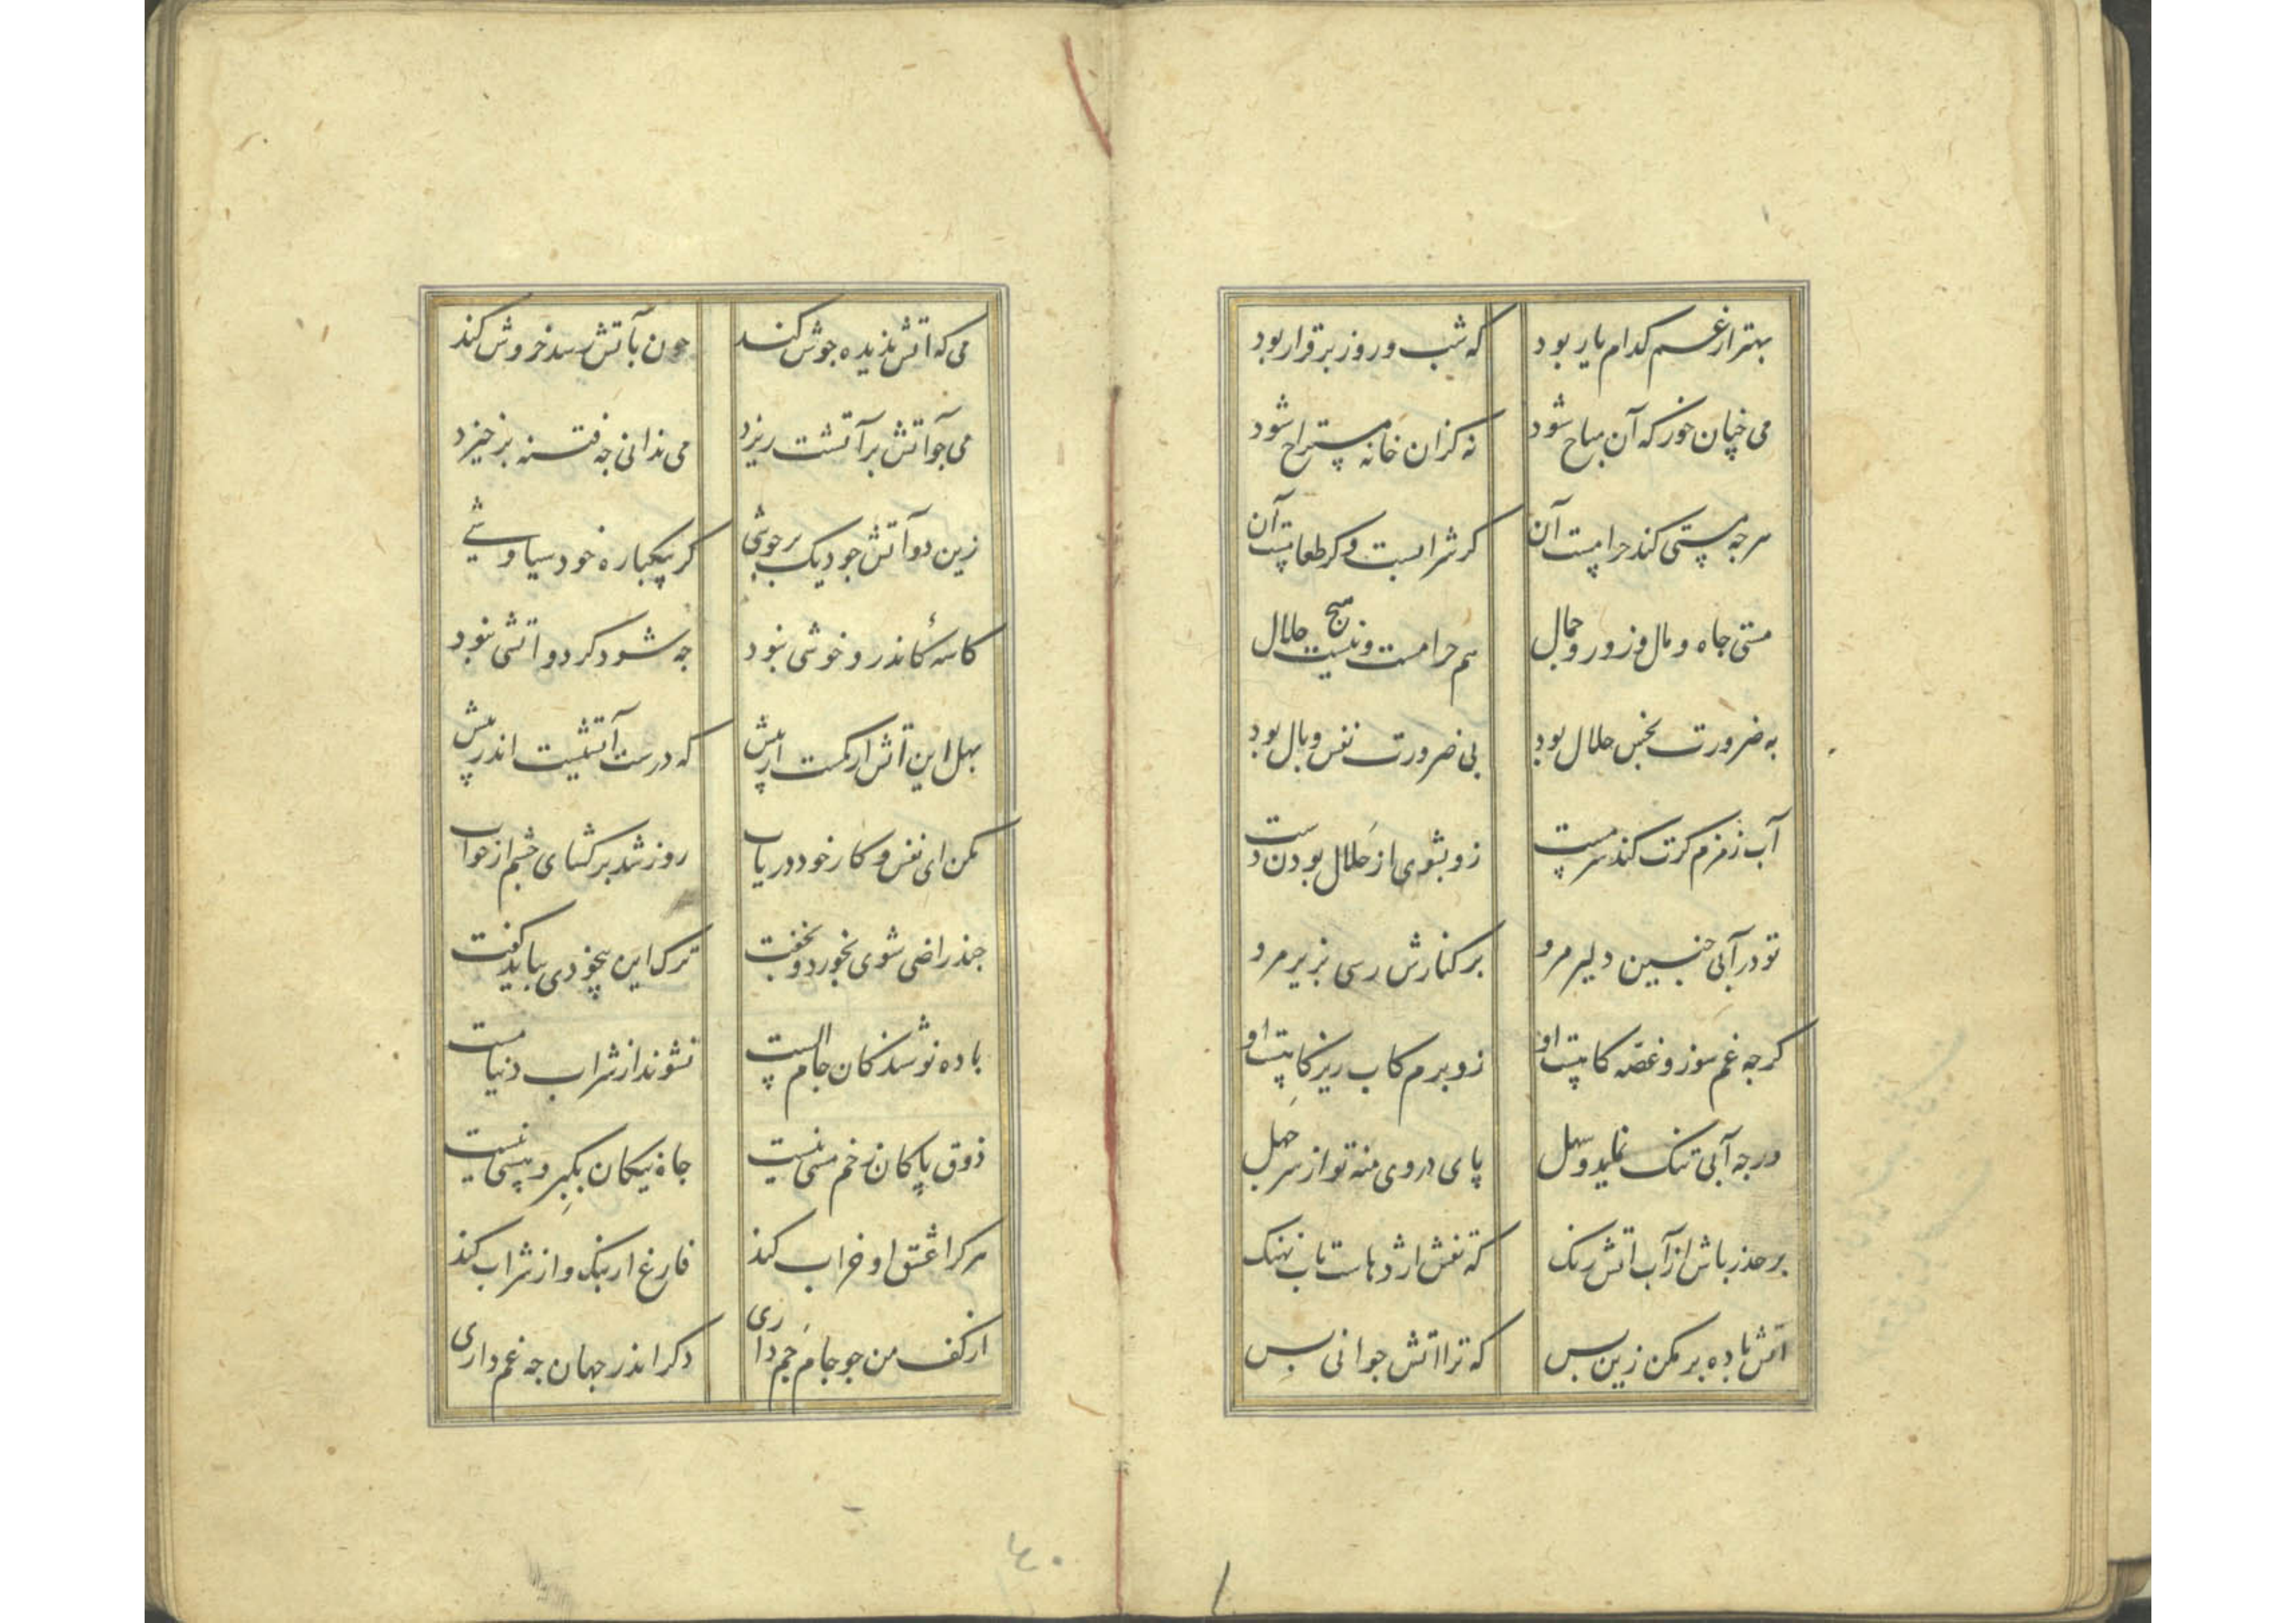 بهتر از غم کدام یار بود که شب و روز برقرار بود
می جنان خور که آن مباح شود نه کزان خانه مستراح شود
هرجه مستی کند حرامست آن کر شرابست و کر طعامست آن
مستی جاه و مال و زور و جمال هم حرامست و نیست هیج حلال
به ضرورت نجس حلال بود بی ضرورت نفس وبال بود
آب زمزم کرت کند سرمست زو بشوی از حلال بودن دست
تو در آبی جنین دلیر مرو بر کنارش رسی بزیر مرو
کرجه غم سوز و غصه کاهست او زو برم کاب ریز کاهست او
ورجه آبی تنک نماید و سهل پای در وی منه تو از سر جهل
بر حذر باش از آب اتش رنک که نفش اژدهاست یا نهنک
اتش باده بر مکن زین بس که ترا اتش جوانی بس
می که اتش ندیده جوش کند جون بآتش رسد خروش کند
می جو آتش بر آتشت ریزد می ندانی جه فتنه برخیزد
زین دو آتش جو دیک برجوشی کر بیکباره خود سیاوشی
کاسهٔ کاندرو خوشی نبود جه شود کر دو اتشی نبود
بهل این آتش ار کمست ار بیش که درست آتشیت اندر پیش
مکن ای نفس و کار خود دریاب روز شد برکشای جشم از خواب
جند راضی شوی بخورد و بخفت ترک این بیخودی بباید کفت
باده نوشندکان جام الست نشوند از شراب دنیا مست
ذوق پاکان ز خم مستی نیست جاه نیکان بکبر و پستی نیست
هرکرا عشق او خراب کند فارغ از بنک و از شراب کند
از کف من جو جام جم داری دکر اندر جهان جه غم داری